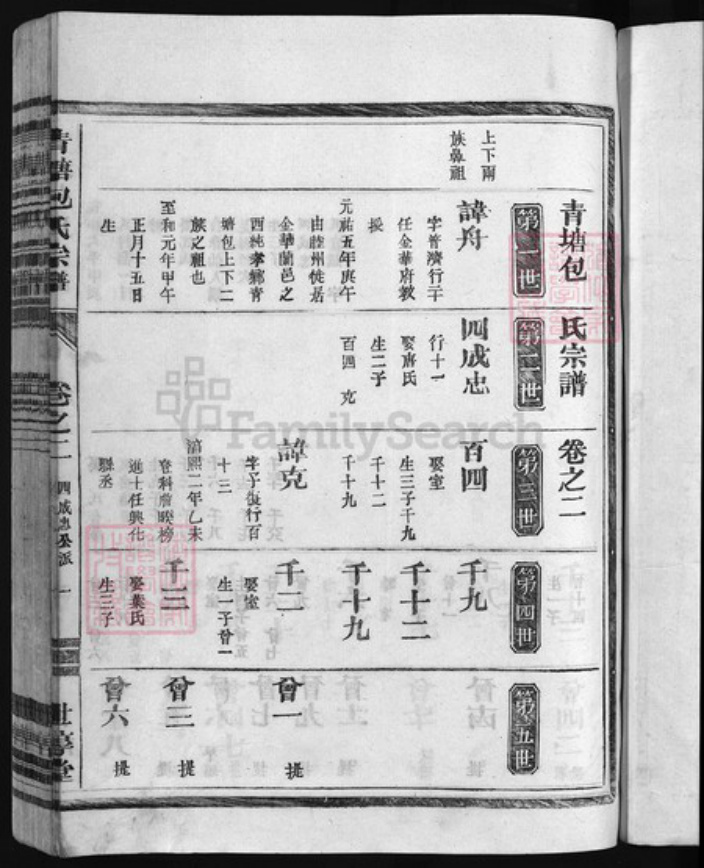 青塘包氏宗譜 卷之二
上下兩
族鼻祖
第一世
諱舟
字普濟行二千
任金華府教
授
元祐五年庚午
由睦州徙居
金華蘭邑之
西純孝鄉青
塘包上下二
族之祖也
至和元年甲午
正月十五日
生
第二世
四成忠
行十一
娶唐氏
生二子
百四 克
第三世
百四
娶室
生三子千九
千十二
千十九
諱克
字子復行百
十三
淳熙二年乙未
登科詹騤榜
進士任興化
縣丞
第四世
千九
千十二
千十九
千二
娶室
生一子曾一
千三
娶葉氏
生三子
第五世
曾一 提
曾三 提
曾六 提
青塘包氏宗譜
卷之二
四成忠公派
一
世享堂
FamilySearch